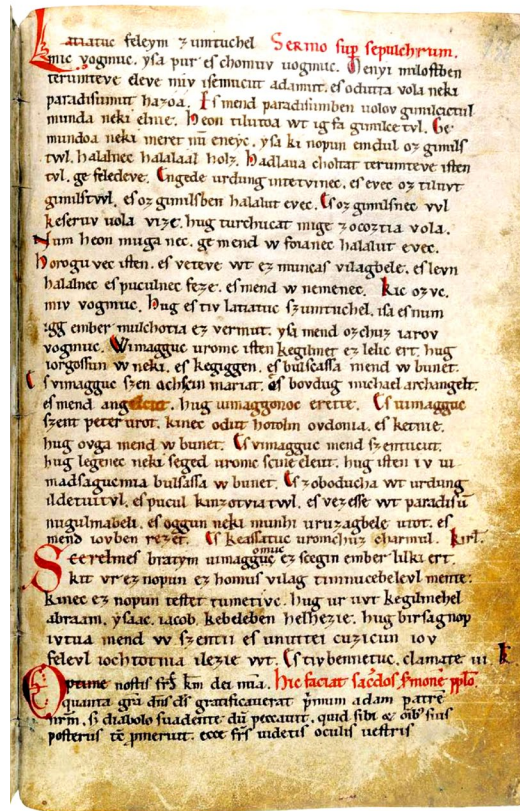 Latiatuc feleym zumtuchel Sermo sup sepulchrum.
mic vogmuc. ysa pur es chomuv uogmuc. Menyi milostben
terumteve eleve miv isemucut adamut. es odutta vola neki
paradisumut hazoa. Es mend paradisumben uolov gimilcictul
munda neki elnie. Heon tilutoa wt ig fa gimilce tvl. Ge
mundoa neki meret nū eneyc. ysa ki nopun emdul oz gimils
twl. halalnec halalaal holz. Hadlaua choltat terumteve isten
tvl. ge feledeve. Engede urdung intetvinec. es evec oz tiluvt
gimilstwl. es oz gimilsben halalut evec. Es oz gimilsnec vvl
keseruv uola vize. hug turchucat mige zocoztia vola.
Num heon muga nec. ge mend w foianec halalut evec.
Horogu vec isten. es veteve wt ez muncas vilagbele. es levn
halalnec es puculnec feze. es mend w nemenec. Kic ozvc.
miv vogmuc. Hug es tiv latiatuc szumtuchel. isa es num
igg ember mulchotia ez vermut. ysa mend ozchuz iarov
vogmuc. Wimagguc uromc isten kegilmet ez lelic ert. hug
iorgossun w neki. es kegiggen. es bulsassa mend w bunet.
Es vimagguc szen achscin mariat. es bovdug michael archangelt.
es mend angelcut. hug uimaggonoc erette. Es uimagguc
szent peter urot. kinec odut hotolm ovdonia. es ketnie.
hug ovga mend w bunet. Es vimagguc mend szentucut.
hug legenec neki seged uromc scine eleut. hug isten iv ui
madsaguc mia bulsassa w bunet. Es zoboducha wt urdung
ildetuitvl. es pucul kinzotviatwl. es vezesse wt paradisū
nugulmabeli. es oggun neki munhi uruzagbele utot. es
mend iovben rezet. Es keassatuc uromchuz charmul. Kirl.
Scerelmes bratym uimagguc omuc ez scegin ember lilki ert.
kit vr ez nopun ez homus vilag timnucebelevl mente.
kinec ez nopun testet tumetivc. hug ur uvt kegilmehel
abraam. ysaac. iacob. kebeleben helhezie. hug birsagnop
ivtva mend w szentii es unuttei cuzicun iov
felevl iochtotnia ilezie wt. Es tivbennetuc. clamate iii. K
Optime nostis frs̄ km dei mīa. Hic faciat sac̄dos s̄monē pplo.
quanta grā dn̄s ds̄ gratificaverat p̄mum adam patrē
nrm̄. si diabolo suadente dū peccavit. quid sibi et oīb' suis
posteris tē p̄merut. ecce frs̄ videtis oculis uestris